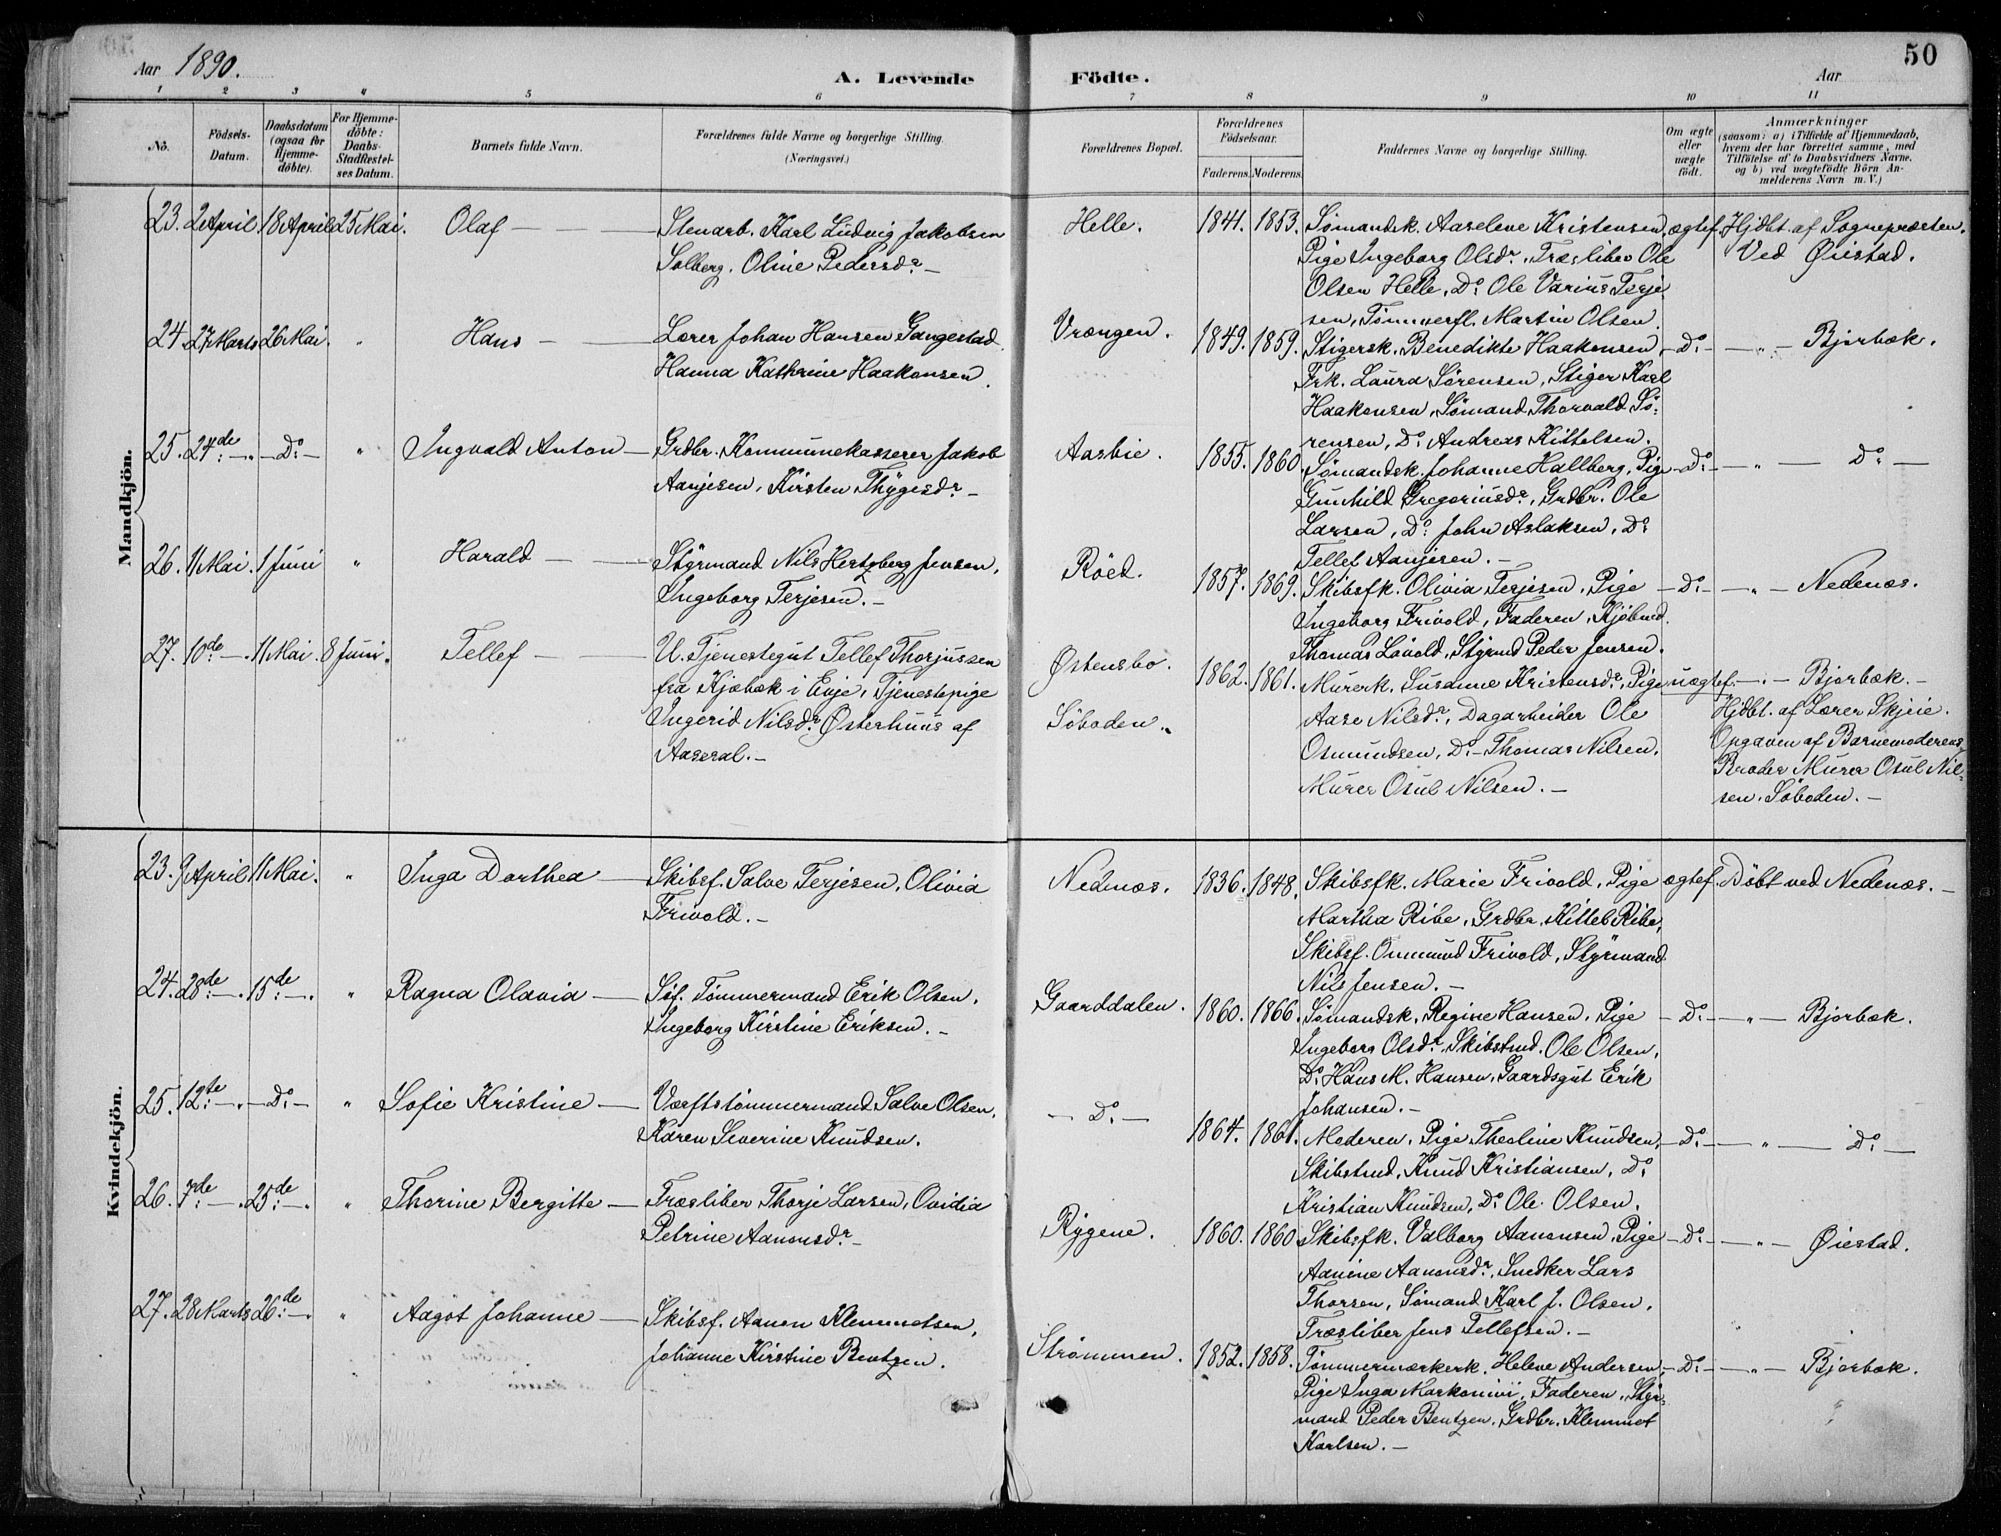 Aar 1890.
A. Levende Fødte.
Aar
50
1 2 3 4 5 6 7 8 9 10 11
No.
Födsels-
Datum.
Daabsdatum
(ogsaa for
Hjemme-
döbte).
For Hjemme-
döbte:
Daabs-
Stadfæstel-
ses Datum.
Barnets fulde Navn.
Forældrenes fulde Navne og borgerlige Stilling.
(Næringsvei.)
Forældrenes Bopæl.
Forældrenes
Födselsaar.
Faderens. Moderens.
Faddernes Navne og borgerlige Stilling.
Om ægte
eller
uægte
födt.
Anmærkninger
(saasom: a) i Tilfælde af Hjemmedaab,
hvem der har forrettet samme, med
Tilföielse af to Daabsvidners Navne,
og b) ved uægtefödte Börn An-
melderens Navn m. V.)
Mandkjön.
23. 2 April 18 April 25 Mai. Olaf — Stenarb. Karl Ludvig Jakobsen
Solberg. Oline Pedersdr. —
Helle. 1841. 1853. Sømandsk. Aaselene Kristensen, ægtef. Hjdbt. af Sognepræsten.
Pige Ingeborg Olsdr., Træsliber Ole Ved Øiestad.
Olsen Helle, Do. Ole Varius Terje-
sen, Tømmerfl. Martin Olsen.
24. 27 Marts 26 Mai. " Hans — Lærer Johan Hansen Gangestad,
Hanna Kathrine Haakonsen.
Vrængen. 1849. 1859. Stigersk. Benedikte Haakonsen, — Do. — " — Bjorbæk.
Frk. Laura Sørensen, Stiger Karl
Haakonsen, Sømand Thorvald Sø-
rensen, Do. Andreas Kittelsen.
25. 24de — Do. — " Ingvald Anton — Grdbr. Kommunekasserer Jakob
Aanjesen, Kirsten Thygesdr. —
Aasbie. 1855. 1860. Sømandsk. Johanne Hallberg, Pige — Do. — " — Do. —
Gunhild Gregoriusdr., Grdbr. Ole
Larsen, Do. John Aslaksen, Do.
Tellef Aanjesen. —
26. 11 Mai. 1 Juni " Harald — Styrmand Nils Hertzberg Jensen,
Ingeborg Terjesen. —
Röed. 1857. 1869. Skibsfk. Olivia Terjesen, Pige — Do. — " — Nedenæs.
Ingeborg Frivold, Faderen, Kjøbmd.
Thomas Løvold, Styrmd Peder Jensen.
27. 10de — 11 Mai. 8 Juni. Tellef — U. Tjenestegut Tellef Thorjussen
fra Kjøbæk i Evje, Tjenestepige
Ingerid Nilsdr. Østerhuus af
Aaseral. —
Østensbo.
Søboden.
1862. 1861. Murerk. Susanne Kristensdr., Pige uægtef. — " — Bjorbæk. —
Aase Nilsdr., Dagarbeider Ole Hjdbt. af Lærer Skjeie.
Osmundsen, Do. — Thomas Nilsen, Opgaven af Barnemoderens
Murer Osul Nilsen. — Broder Murer Osul Nil-
sen. Søboden. —
Kvindekjön.
23. 9 April 11 Mai. " Inga Dorthea — Skibsf. Salve Terjesen, Olivia
Frivold. —
Nedenæs. 1836. 1848. Skibsfk. Marie Frivold, Pige ægtef. Døbt ved Nedenæs. —
Martha Ribe, Grdbr. Kittel Ribe,
Skibsf. Ommund Frivold, Styrmand
Nils Jensen. —
24. 28de — 15de — " Ragna Olavia — Søf. Tømmermand Erik Olsen,
Ingeborg Kirstine Eriksen. —
Gaarddalen. 1860. 1866. Sømandsk. Regine Hansen, Pige — Do. — " — Bjorbæk.
Ingeborg Olsdr., Skibstmd. Ole Olsen,
Do. Hans M. Hansen, Gaardsgut Erik
Johansen. —
25. 12te — Do. — " Sofie Kristine — Værftstømmermand Salve Olsen,
Karen Severine Knudsen.
— Do. — 1864. 1861. Moderen, Pige Theoline Knudsen, — Do. — " — Do. —
Skibstmd. Knud Kristiansen, Do.
Kristian Knudsen, Do. Ole Olsen.
26. 7de — 25de — " Thorine Bergitte — Træsliber Thorje Larsen, Ovidia
Petrine Aanonsdr. —
Rygene. 1860. 1860 Skibsfk. Valborg Aanonsen, Pige — Do. — " — Øiestad.
Aanine Aanonsdr., Snedker Lars
Thorsen, Sømand Karl J. Olsen,
Træsliber Jens Tellefsen. —
27. 28 Marts 26de — " Aagot Johanne — Skibsf. Aanon Klemmetsen,
Johanne Kirstine Bentzen.
Strømmen. 1852. 1858. Tømmermærkerk. Helene Andersen, — Do. — " — Bjorbæk.
Pige Inga Markonivi, Faderen, Styr-
mand Peder Bentzen, Grdbr. Klemmet
Karlsen. —